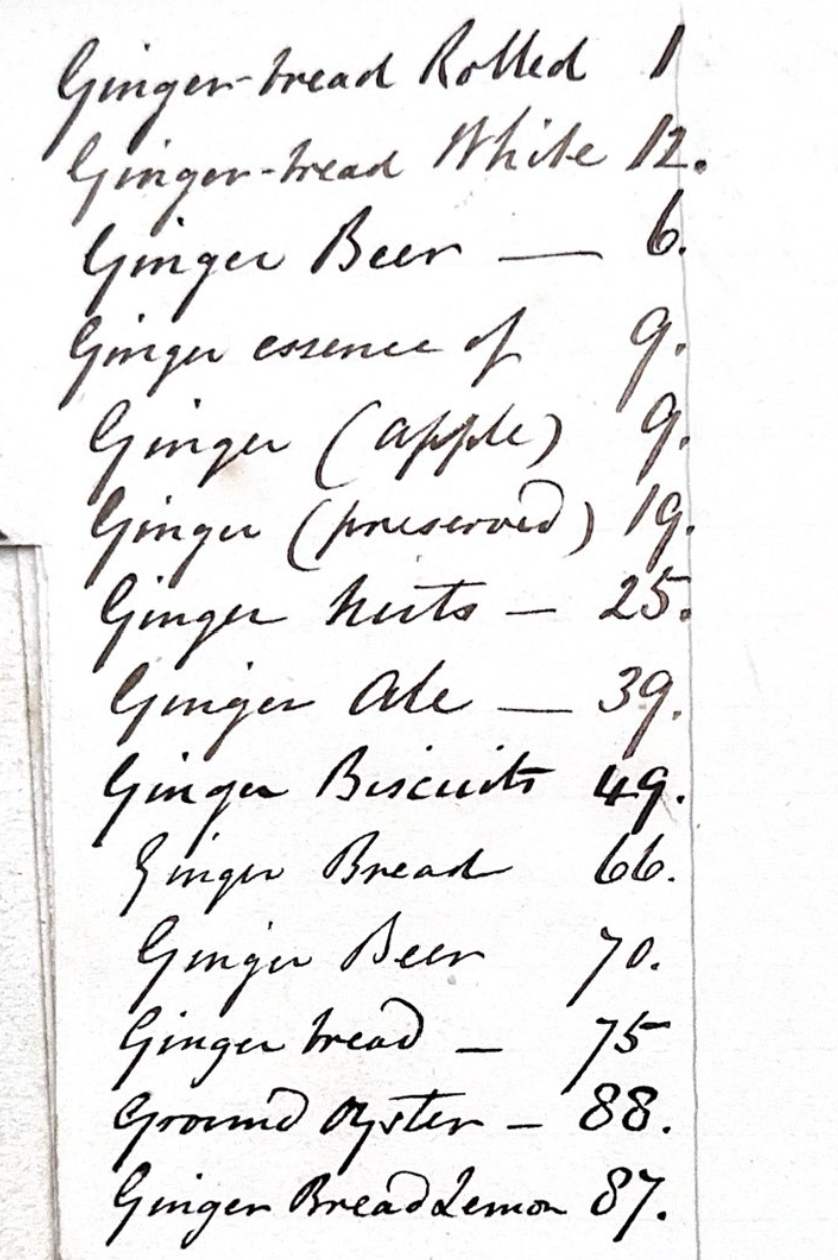 Ginger-bread Rolled 1
Ginger-bread White 12.
Ginger Beer — 6.
Ginger essence of 9.
Ginger (apple) 9.
Ginger (preserved) 19.
Ginger nuts — 25.
Ginger Ale — 39.
Ginger Biscuits 49.
Ginger Bread 66.
Ginger Beer 70.
Ginger bread — 75
Ground Oyster — 88.
Ginger Bread Lemon 87.